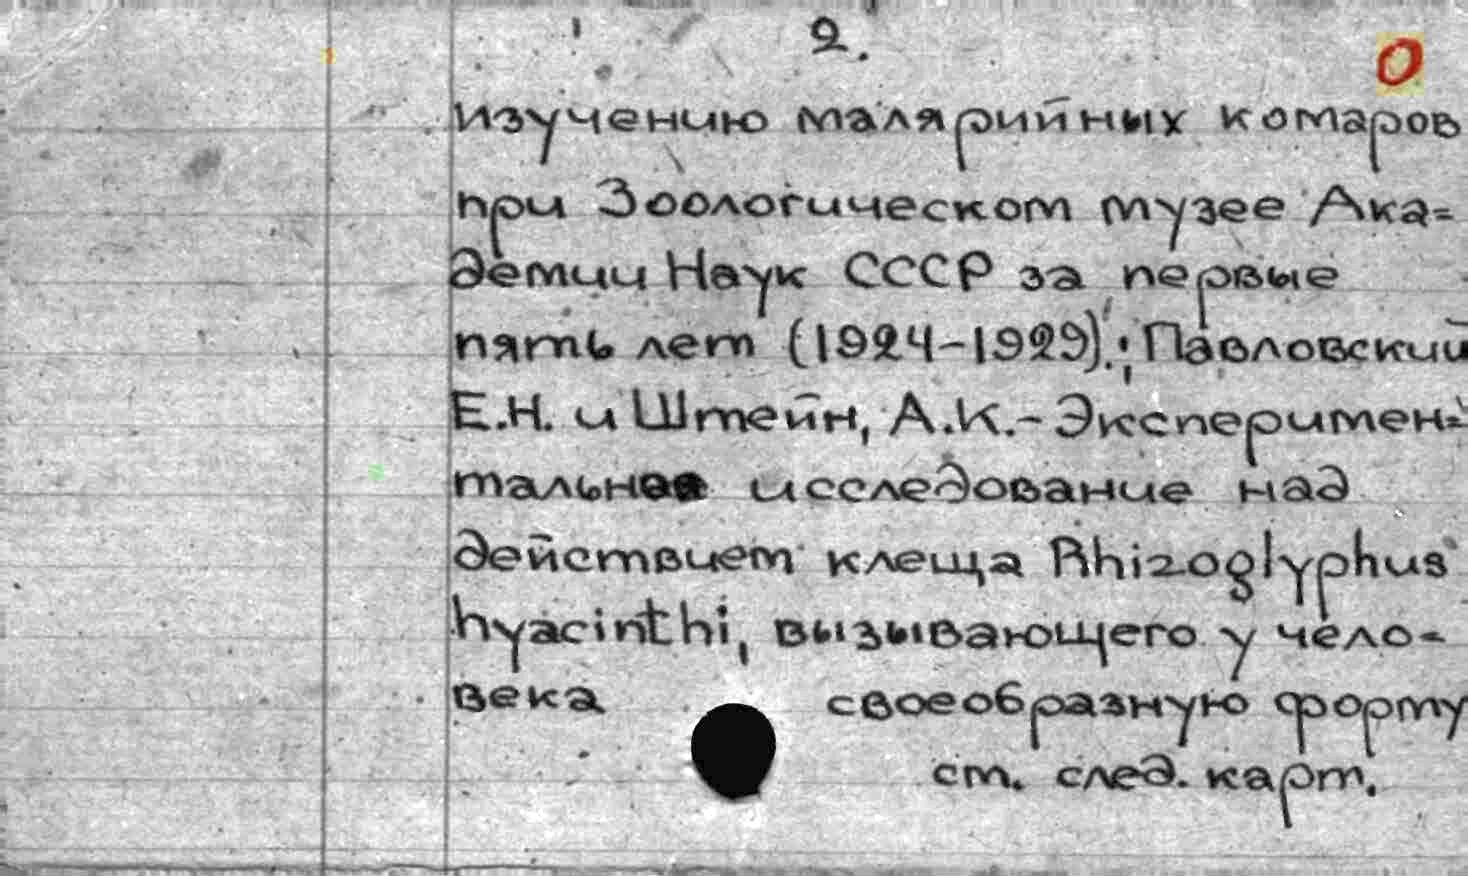 2.
О
изучению малярийных комаров
при Зоологическом музее Ака=
демии Наук СССР за первые
пять лет (1924-1929).; Павловский
Е.Н. и Штейн, А.К.- Эксперимен=
тальное исследование над
действием клеща Rhizoglyphus
hyacinthi, вызывающего у чело=
века своеобразную форму
см. след. карт.